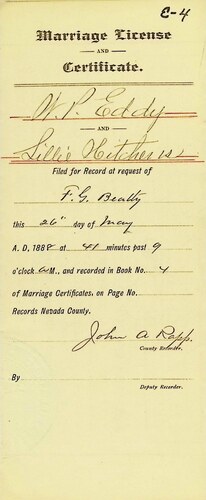 C-4
Marriage License
AND
Certificate.
W. P. Eddy
AND
Lillie
Filed for Record at request of
F. G. Beatty
this 26" day of May
A. D, 188 at 41 minutes past 9
o'clock A M., and recorded in Book No. 4
of Marriage Certificates, on Page No.
Records Nevada County.
John A Rapp.
County Recorder.
By
Deputy Recorder.